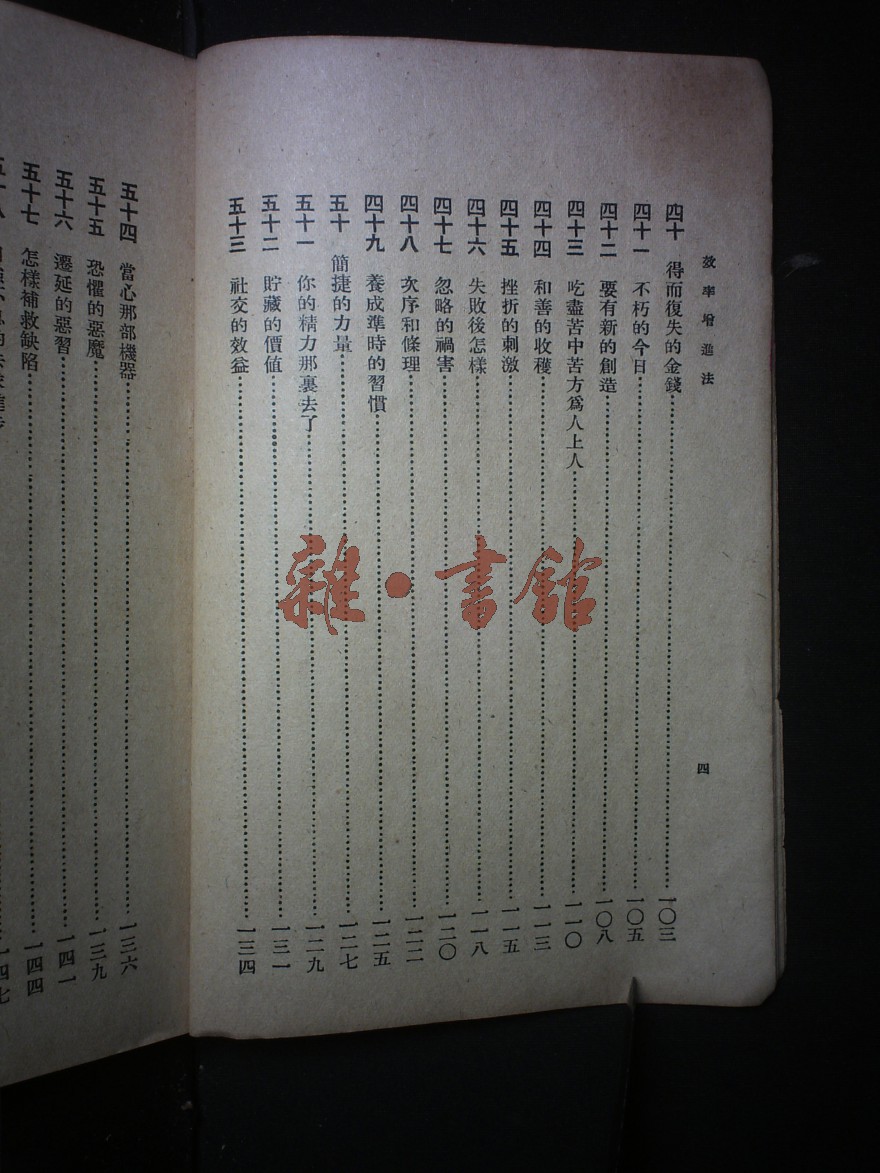 效率增進法
四
四十 得而復失的金錢 一〇三
四十一 不朽的今日 一〇五
四十二 要有新的創造 一〇八
四十三 吃盡苦中苦方爲人上人 一一〇
四十四 和善的收穫 一一三
四十五 挫折的刺激 一一五
四十六 失敗後怎樣 一一八
四十七 忽略的禍害 一二〇
四十八 次序和條理 一二二
四十九 養成準時的習慣 一二五
五十 簡捷的力量 一二七
五十一 你的精力那裏去了 一二九
五十二 貯藏的價値 一三一
五十三 社交的效益 一三四
五十四 當心那部機器 一三六
五十五 恐懼的惡魔 一三九
五十六 遷延的惡習 一四一
五十七 怎樣補救缺陷 一四四
五十八 一四七
雜·書館